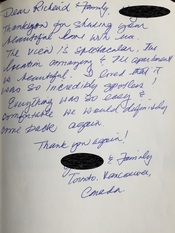 Dear Richard & Family,
Thankyou for sharing your
beautiful home with us
The view is spectacular. The
location amazing & the apartment
is beautiful. I loved that it
was so incredibly spotless!
Everything was so easy &
comfortable we would definitely
come back again
Thank you again!
& Family
Toronto. Vancouver,
Canada